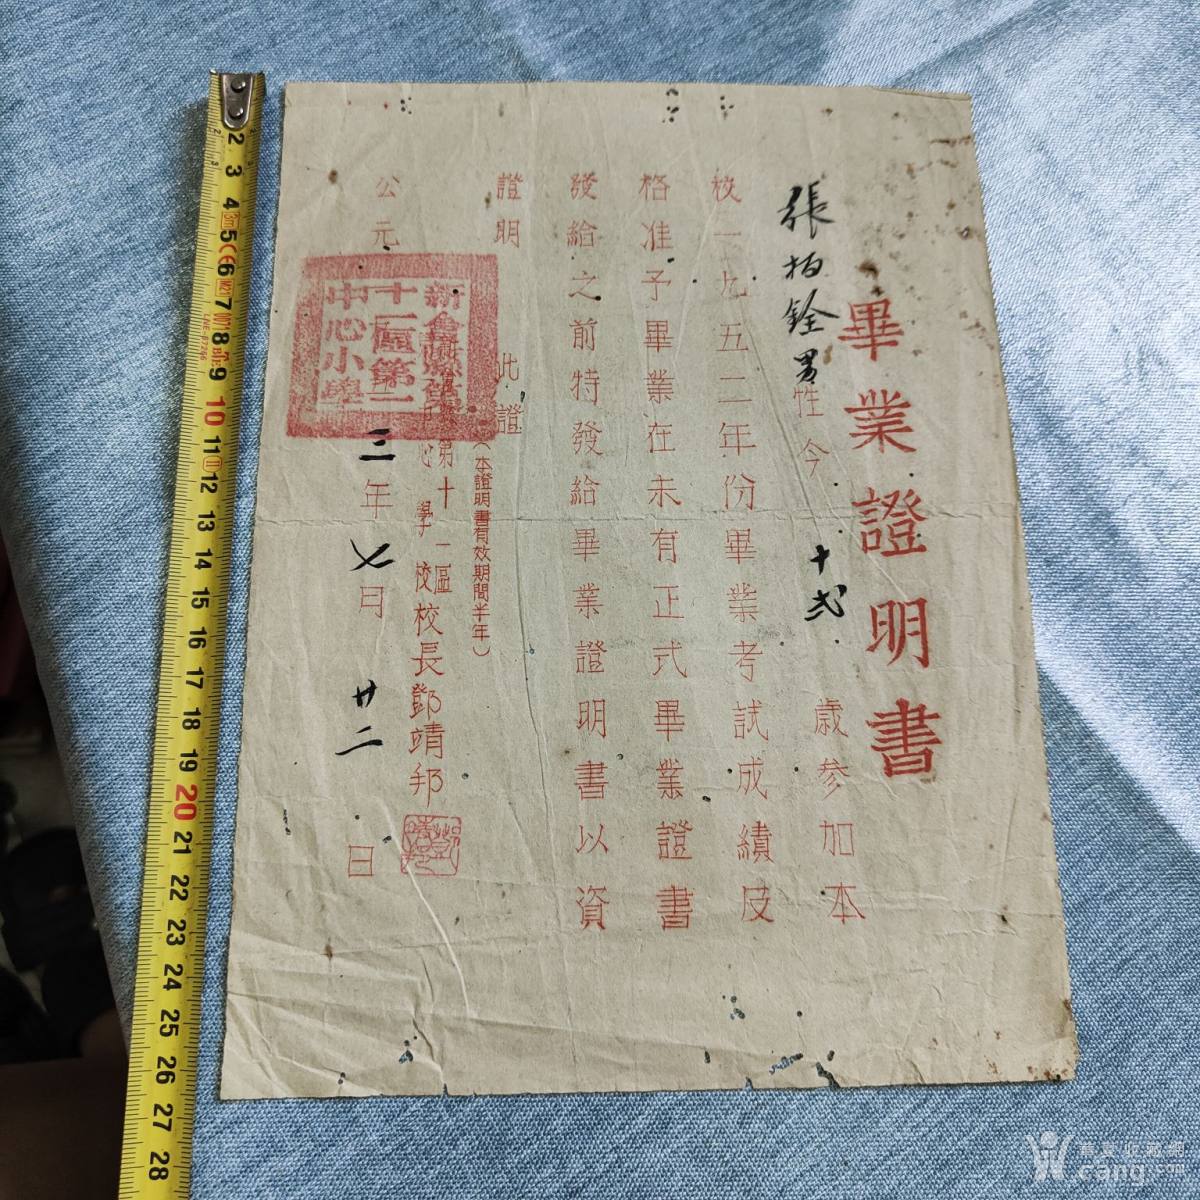 畢業證明書
張栢銓男性今十弍歲參加本
校一九五二年份畢業考試成績及
格准予畢業在未有正式畢業證書
發給之前特發給畢業證明書以資
證明 此證
(本證明書有效期間半年)
第十一區
學校校長鄧靖邦
公元 三年七月廿二日
新會縣第
十一區第二
中心小學
2 3 4 5 6 7 8 9 10 11 12 13 14 15 16 17 18 19 20 21 22 23 24 25 26 27 28
3m
CE
華夏收藏網
cang.com